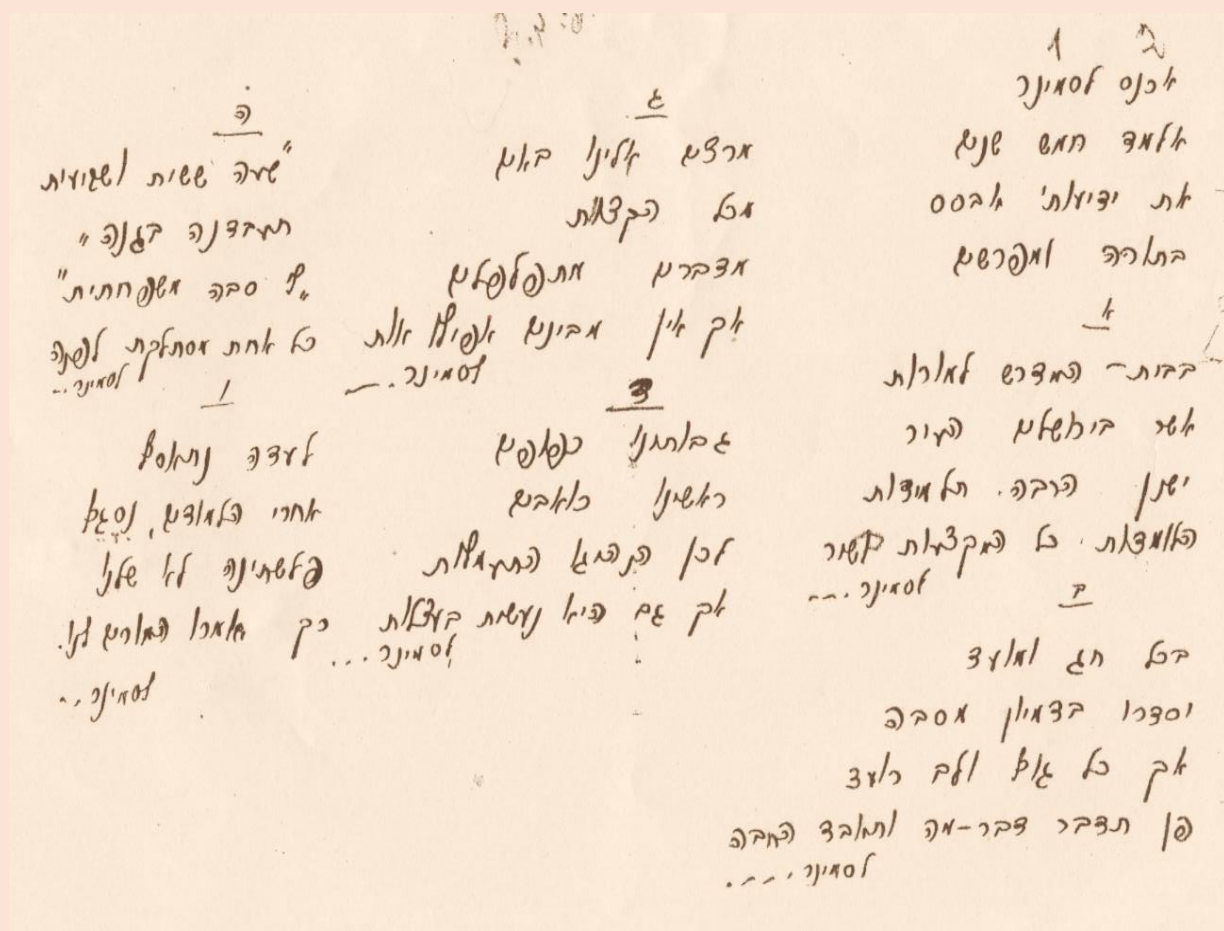 אכנס לסמינר
אלמד חמש שנים
את ידיעותי אבסס
בתורה ומפרשים
א
בבית-המדרש למורות
אשר בירושלים העיר
ישנן הרבה תלמידות
הלומדות כל המקצעות בשיר
לסמינר....
ב
בכל חג ומועד
יסדרו בדמיון מסבה
אך כל גוף ולב רועד
פן תדבר דבר-מה ותאבד החבה
לסמינר....
ג
מרצים אלינו באים
מכל הקצוות
מדברים מתפלפלים
אך אין מבינים אפילו אות
לסמינר...
ד
גבותינו כפופים
ראשינו כואבים
לכן התעמלות
אך גם היא נעשית בעצלות
לסמינר...
ה
"שעה ששית ושביעית
תעבדנה בגנה"
"יש סבה משפחתית"
כל אחת מסתלקת לפנה
לסמינר...
ו
לעדה נתאסף
אחרי הלמודים,
פלשתינה לא שלנו
כך אמרו המורים לנו.
לסמינר...